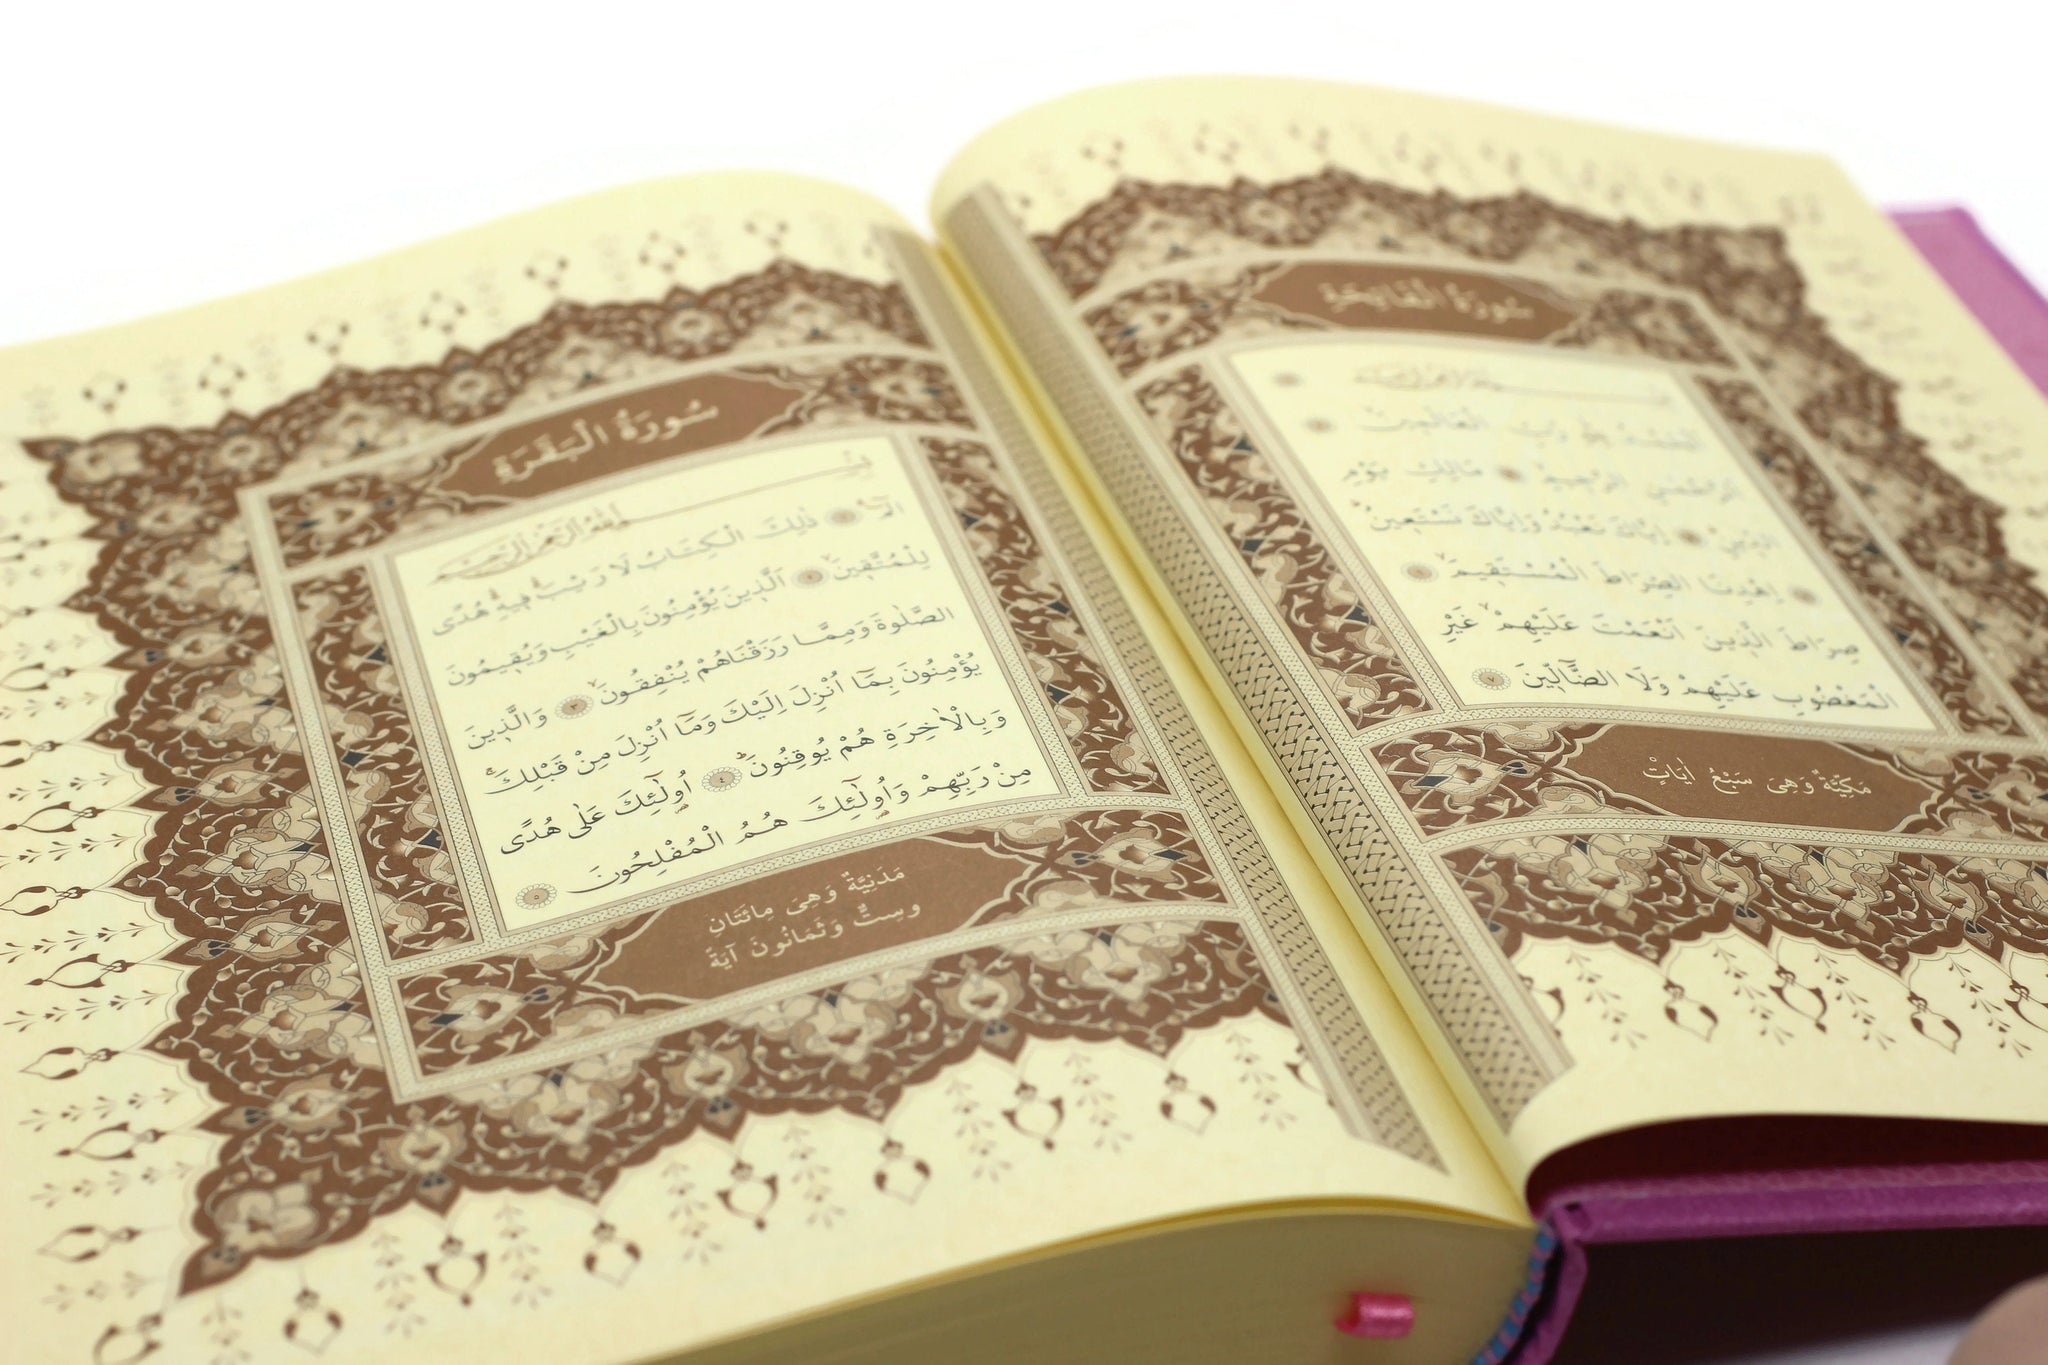 سُورَةُ الْفَاتِحَةِ
بِسْمِ اللّٰهِ الرَّحْمٰنِ الرَّحِيمِ
اَلْحَمْدُ لِلّٰهِ رَبِّ الْعَالَمِينَۙ ﴿٢﴾
اَلرَّحْمٰنِ الرَّحِيمِۙ ﴿٣﴾ مَالِكِ يَوْمِ
الدِّينِۜ ﴿٤﴾ اِيَّاكَ نَعْبُدُ وَاِيَّاكَ نَسْتَعِينُۜ
﴿٥﴾ اِهْدِنَا الصِّرَاطَ الْمُسْتَقِيمَۙ ﴿٦﴾
صِرَاطَ الَّذِينَ اَنْعَمْتَ عَلَيْهِمْۙ غَيْرِ
الْمَغْضُوبِ عَلَيْهِمْ وَلَا الضَّٓالِّينَ ﴿٧﴾
مَكِّيَّةٌ وَهِىَ سَبْعُ اٰيَاتٍ
سُورَةُ الْبَقَرَةِ
بِسْمِ اللّٰهِ الرَّحْمٰنِ الرَّحِيمِ
الٓمٓۚ ﴿١﴾ ذٰلِكَ الْكِتَابُ لَا رَيْبَۚ فِيهِۚ هُدًى
لِلْمُتَّقِينَۙ ﴿٢﴾ اَلَّذِينَ يُؤْمِنُونَ بِالْغَيْبِ وَيُقِيمُونَ
الصَّلٰوةَ وَمِمَّا رَزَقْنَاهُمْ يُنْفِقُونَۙ ﴿٣﴾ وَالَّذِينَ
يُؤْمِنُونَ بِمَٓا اُنْزِلَ اِلَيْكَ وَمَٓا اُنْزِلَ مِنْ قَبْلِكَۚ
وَبِالْاٰخِرَةِ هُمْ يُوقِنُونَۜ ﴿٤﴾ اُولٰٓئِكَ عَلٰى هُدًى
مِنْ رَبِّهِمْ وَاُولٰٓئِكَ هُمُ الْمُفْلِحُونَ ﴿٥﴾
مَدَنِيَّةٌ وَهِىَ مِائَتَانِ
وَسِتٌّ وَثَمَانُونَ آيَةً